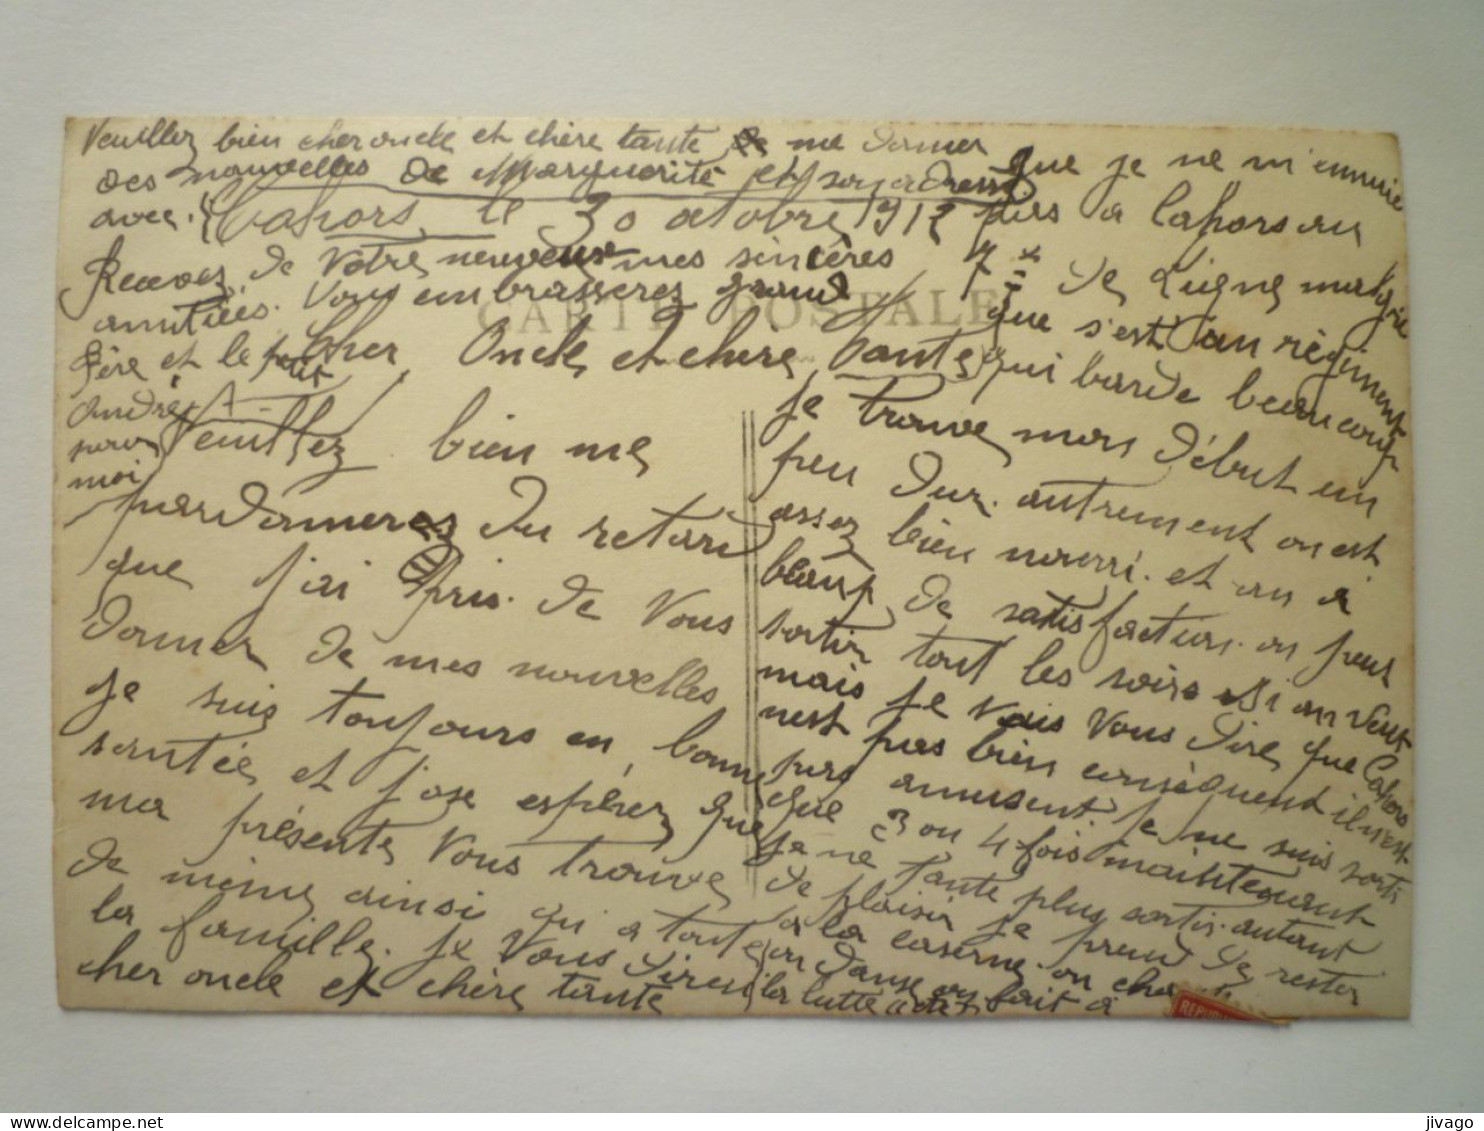 Veuillez bien cher oncle et chère tante de me donner
des nouvelles de Marguerite et son adresse
avec.
Cahors, le 30 octobre 1912
Recevez de Votre neveu mes sincères
amitiés. Vous embrasserez grand
Père et le petit
André
pour
moi
CARTE POSTALE
Cher Oncle et chère Tante
Veuillez bien me
pardonner du retard
que j'ai pris. de Vous
donner de mes nouvelles
je suis toujours en bonne
santée et j'ose espérez que
ma présente Vous trouve
de même ainsi qu'a toute
la famille. je Vous direi
cher oncle et chère tante
que je ne m'ennuie
pas a Cahors au
7e de Ligne malgré
que s'est un règiment
qui barde beaucoup
je trouve mon début un
peu dur. autrement on est
assez bien nourri. et on à
beaup de satisfaction. on peux
sortir tout les soirs si on veut
mais je vais Vous dire que Cahors
nest pas bien conséquent il n'est
pas amusent. je ne suis sorti
que 3 ou 4 fois maintenant
je ne tante plus sortir. autant
de plaisir je prend de rester
à la caserne. on chante
on danse on fait à
la lutte
REPU
delcampe.net
jivago